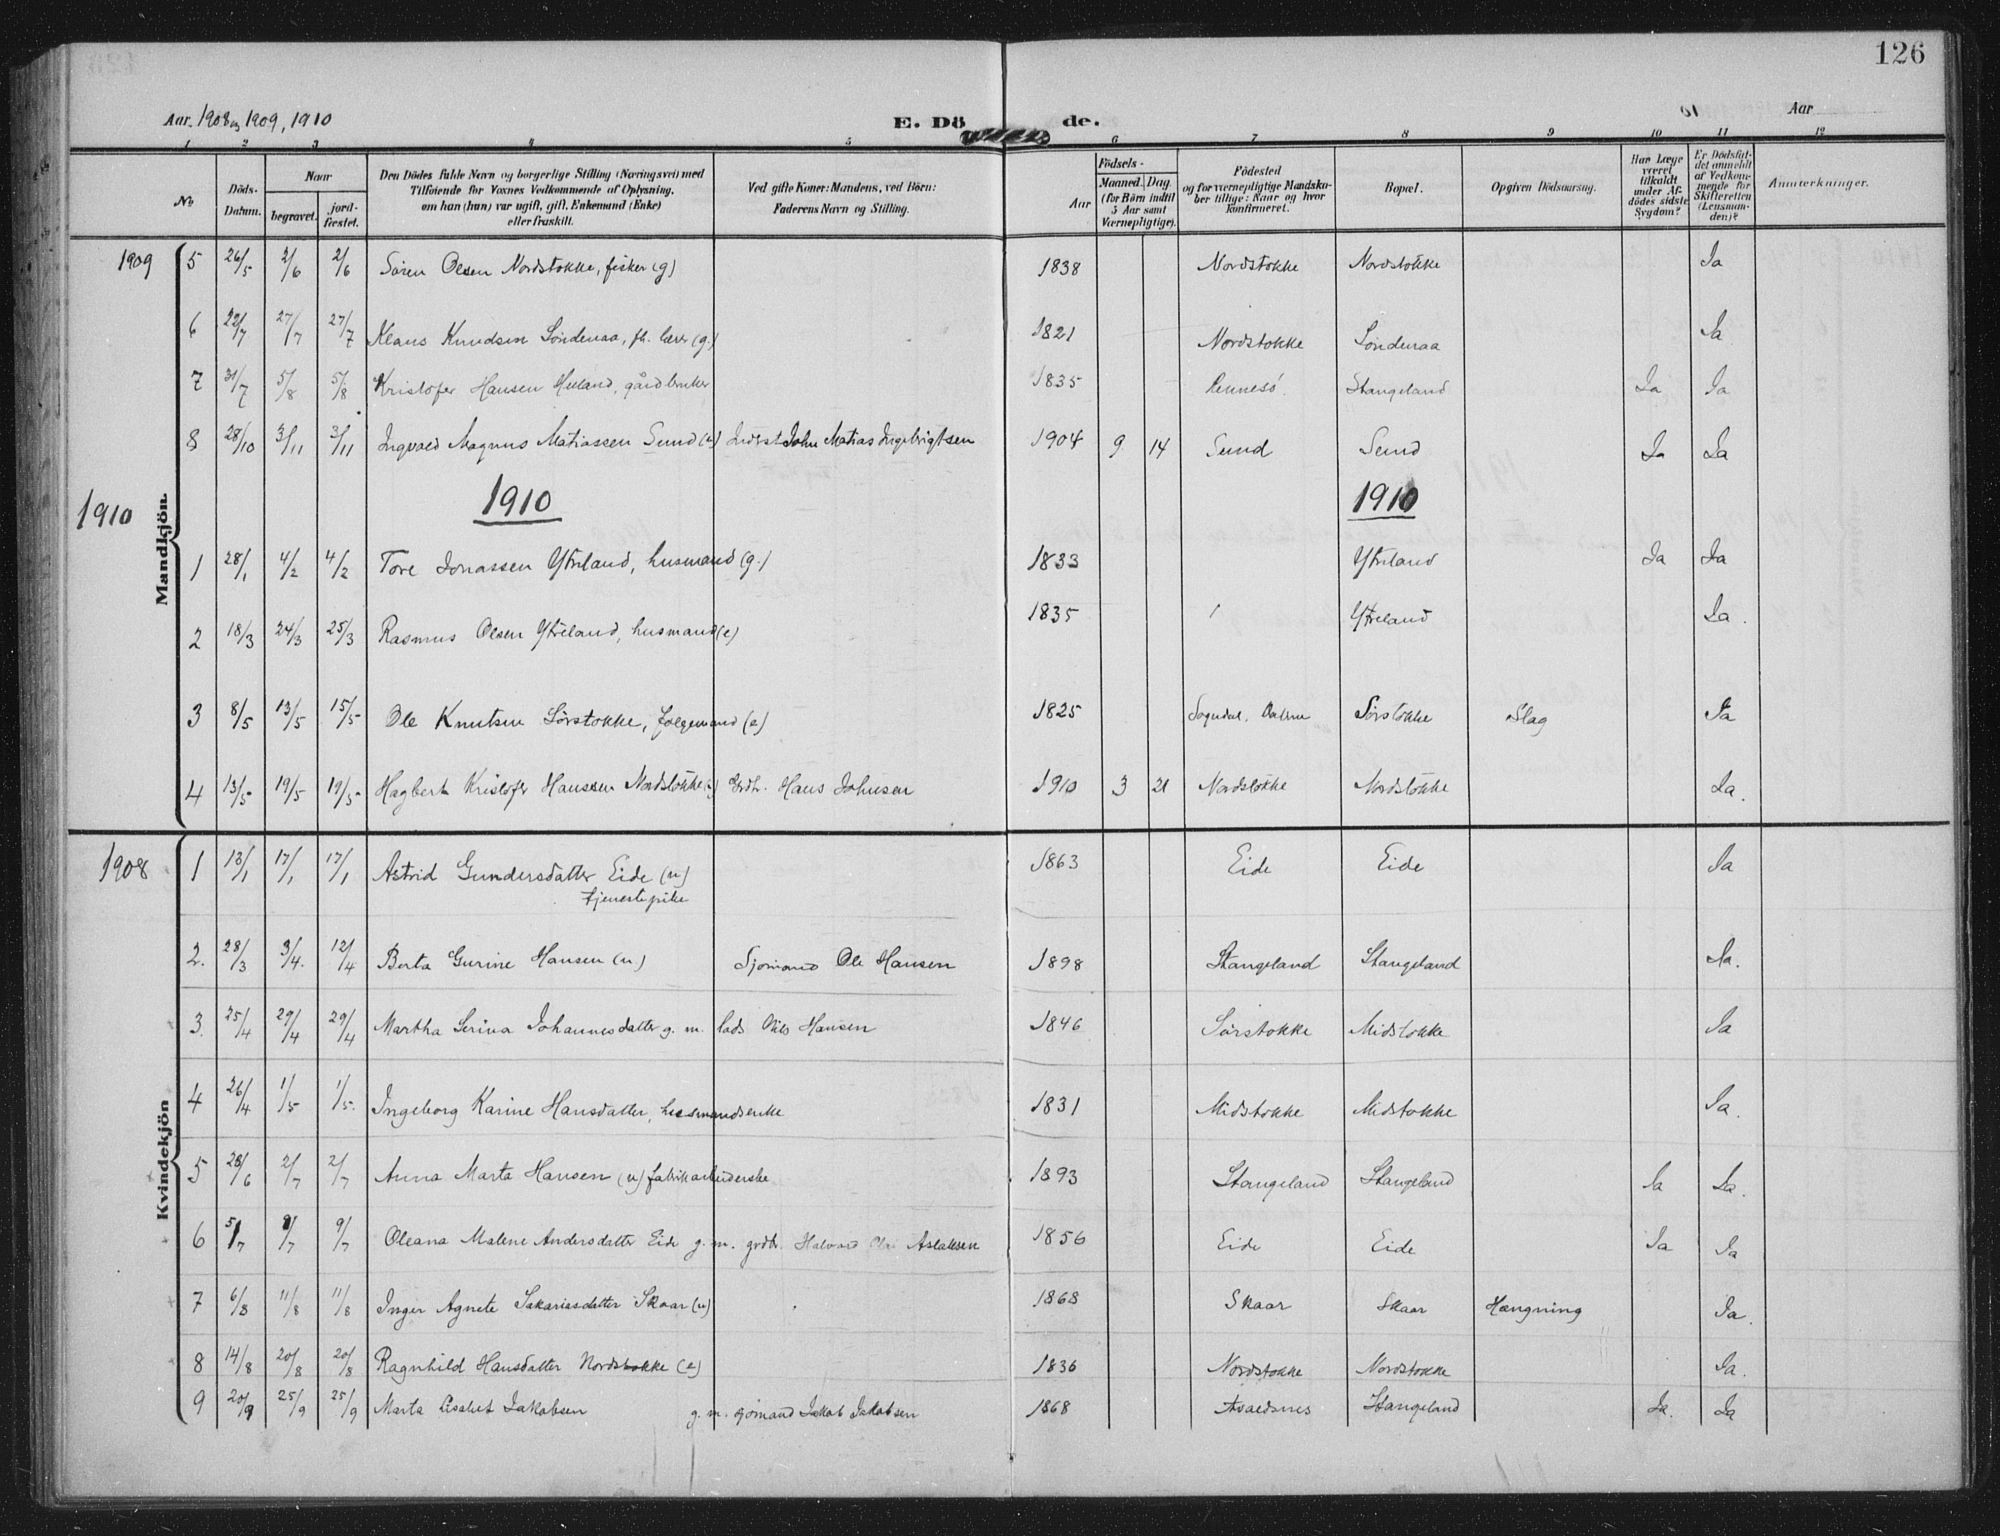 126
Aar 1908 og 1909, 1910
E. Döde.
Aar
1 2 3 4 5 6 7 8 9 10 11 12
No
Döds-Datum.
Naar
begravet.
jordfæstet.
Den Dödes fulde Navn og borgerlige Stilling (Næringsvei) med
Tilföiende for Voxnes Vedkommende af Oplysning,
om han (hun) var ugift, gift, Enkemand (Enke)
eller fraskilt.
Ved gifte Koner: Mandens, ved Börn:
Faderens Navn og Stilling.
Födsels-
Aar
Maaned. Dag.
(for Börn indtil
5 Aar samt
Værnepligtige).
Födested
og for værnepligtige Mandska-
ber tillige: Naar og hvor
konfirmeret.
Bopæl.
Opgiven Dödsaarsag.
Har Læge
været
tilkaldt
under Af-
dödes sidste
Sygdom?
Er Dödsfal-
det anmeldt
af Vedkom-
mende for
Skifteretten
(Lensman-
den)?
Anmærkninger.
Mandkjön.
1909 5 26/5 2/6 2/6 Sören Olsen Nordstokke, fisker (g) 1838 Nordstokke Nordstokke Ja
6 22/7 27/7 27/7 Klaus Knudsen Söndenaa, fh. lærer (g.) 1821 Nordstokke Söndenaa Ja
7 31/7 5/8 5/8 Kristofer Hansen Meland, gårdbruker 1835 Rennesö Stangeland Ja Ja
8 28/10 3/11 3/11 Ingvald Magnus Matiassen Sund (u) Inderst John Matias Ingebrigtsen 1904 9 14 Sund Sund Ja Ja
1910 1910 1910
1 28/1 4/2 4/2 Tore Jonassen Ytreland, husmand (g.) 1833 Ytreland Ja Ja
2 18/3 24/3 25/3 Rasmus Olsen Ytreland, husmand (e) 1835 Ytreland Ja.
3 8/5 13/5 15/5 Ole Knutsen Sörstokke, folgemand (e) 1825 Sogndal, Dalerne Sörstokke Slag Ja
4 13/5 19/5 19/5 Hagbert Kristofer Hanssen Nordstokke Grdbr. Hans Johnsen 1910 3 21 Nordstokke Nordstokke Ja.
Kvindekjön
1908 1 13/1 17/1 17/1 Astrid Gundersdatter Eide (u) 1863 Eide Eide Ja
tjenestepike
2. 28/3 3/4. 12/4 Berta Gurine Hansen (u) Sjömand Ole Hansen 1898 Stangeland Stangeland Ja.
3. 25/4 29/4 29/4 Martha Serina Johannesdatter g. m. lods Hansen 1846 Sörstokke Midstokke Ja
4 26/4 1/5 1/5. Ingeborg Karine Hansdatter, husmandsenke 1831 Midstokke Midstokke Ja.
5 28/6 2/7 2/7 Anna Marta Hansen (u) fabrikarbeiderske 1893 Stangeland Stangeland Ja Ja.
6 5/7 9/7 9/7 Oleana Malene Andersdatter Eide g. m. grdbr. Halvard Aslaksen 1856 Eide Eide Ja Ja
7 6/8 11/8 11/8 Inger Agnete Sakariasdatter Skaar (u) 1868 Skaar Skaar Hængning Ja.
8 14/8 20/8 20/8 Ragnhild Hansdatter Nordstokke (e) 1836 Nordstokke Nordstokke Ja.
9 20/9 25/9 25/9 Marta Lisabet Jakobsen g. m. sjömand Jakob Jakobsen 1868 Avaldsnes Stangeland Ja. Ja